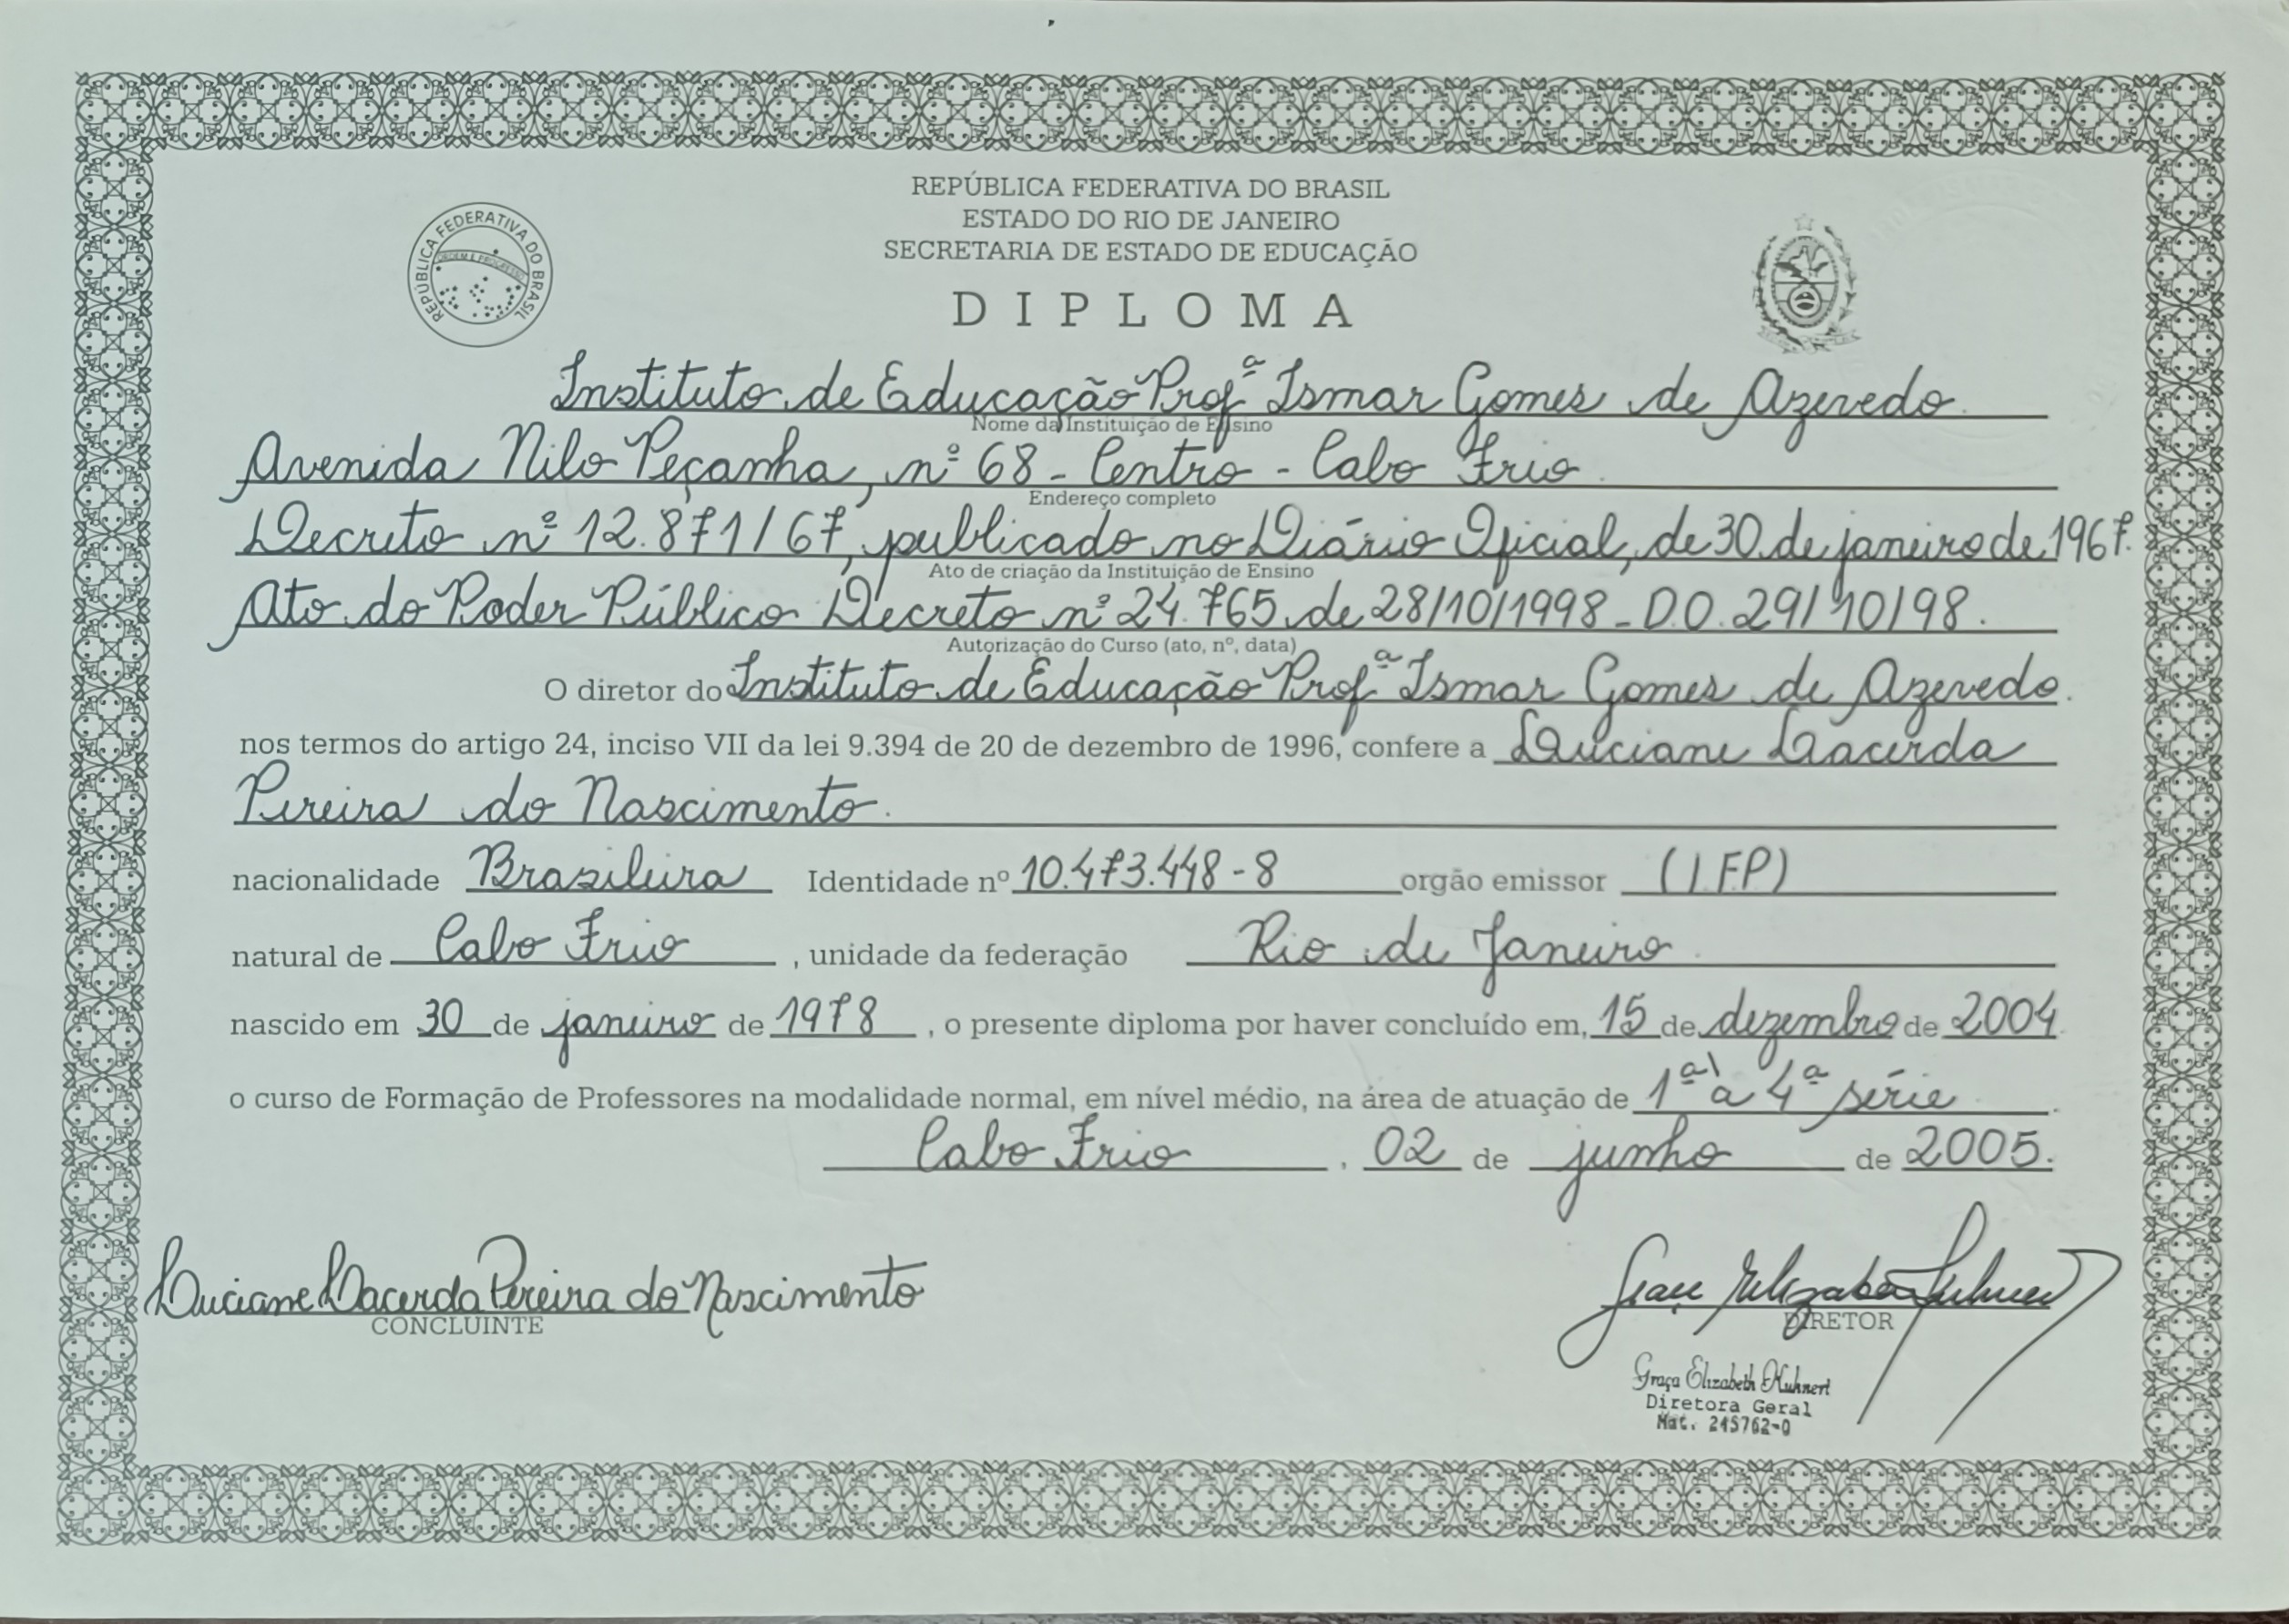 REPÚBLICA FEDERATIVA DO BRASIL
ESTADO DO RIO DE JANEIRO
SECRETARIA DE ESTADO DE EDUCAÇÃO
REPÚBLICA FEDERATIVA DO BRASIL
ORDEM E PROGRESSO
DIPLOMA
Instituto de Educação Profª Ismar Gomes de Azevedo
Nome da Instituição de Ensino
Avenida Nilo Peçanha, nº 68 - Centro - Cabo Frio
Endereço completo
Decreto nº 12.871/67, publicado no Diário Oficial, de 30 de janeiro de 1967.
Ato de criação da Instituição de Ensino
Ato do Poder Público Decreto nº 24.765 de 28/10/1998 - D.O. 29/10/98.
Autorização do Curso (ato, nº, data)
O diretor do Instituto de Educação Profª Ismar Gomes de Azevedo.
nos termos do artigo 24, inciso VII da lei 9.394 de 20 de dezembro de 1996, confere a Luciane Lacerda
Pereira do Nascimento.
nacionalidade Brasileira Identidade nº 10.473.448-8 orgão emissor (I.F.P)
natural de Cabo Frio , unidade da federação Rio de Janeiro.
nascido em 30 de janeiro de 1978 , o presente diploma por haver concluído em, 15 de dezembro de 2004.
o curso de Formação de Professores na modalidade normal, em nível médio, na área de atuação de 1ª à 4ª série.
Cabo Frio , 02 de junho de 2005.
Luciane Lacerda Pereira do Nascimento
CONCLUINTE
Graça Elizabeth Kuhnert
DIRETOR
Graça Elizabeth Kuhnert
Diretora Geral
Mat. 245762-0